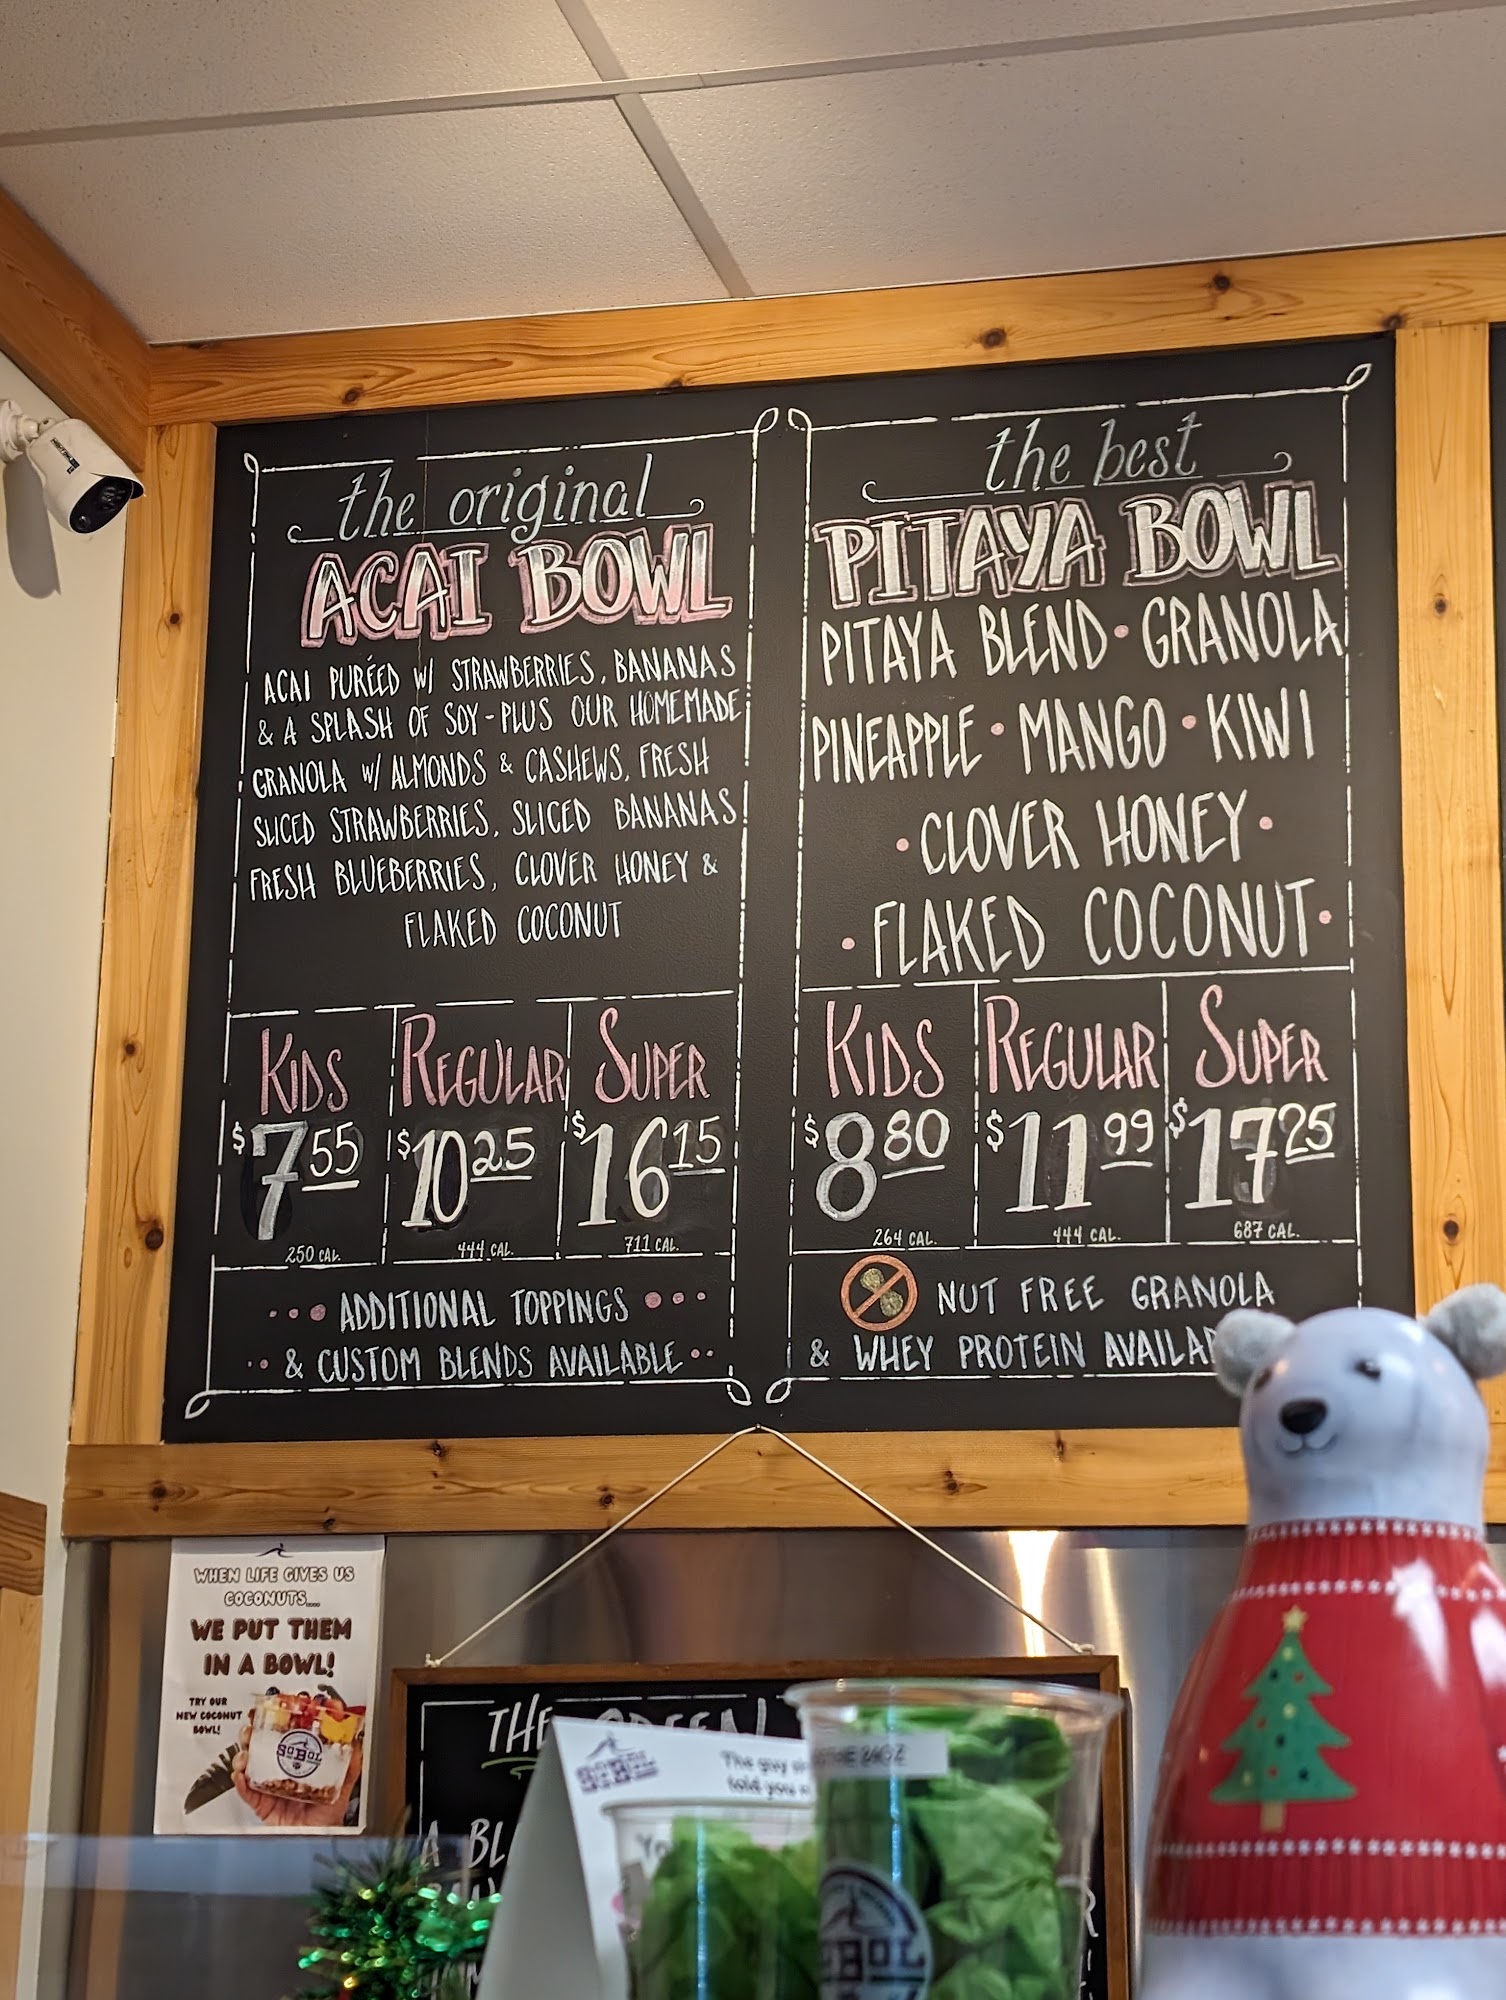 the original
ACAI BOWL
ACAI PURÉED W/ STRAWBERRIES, BANANAS
& A SPLASH OF SOY - PLUS OUR HOMEMADE
GRANOLA W/ ALMONDS & CASHEWS, FRESH
SLICED STRAWBERRIES, SLICED BANANAS
FRESH BLUEBERRIES, CLOVER HONEY &
FLAKED COCONUT
KIDS REGULAR SUPER
$7 55 $10 25 $16 15
250 CAL. 444 CAL. 711 CAL.
ADDITIONAL TOPPINGS
& CUSTOM BLENDS AVAILABLE
the best
PITAYA BOWL
PITAYA BLEND • GRANOLA
PINEAPPLE • MANGO • KIWI
• CLOVER HONEY •
• FLAKED COCONUT •
KIDS REGULAR SUPER
$8 80 $11 99 $17 25
264 CAL. 444 CAL. 687 CAL.
NUT FREE GRANOLA
& WHEY PROTEIN
WHEN LIFE GIVES US
COCONUTS...
WE PUT THEM
IN A BOWL!
TRY OUR
NEW COCONUT
BOWL!
SOBOL
THE GREEN
A BL
SOBOL
The guy
told you
24OZ
SOBOL